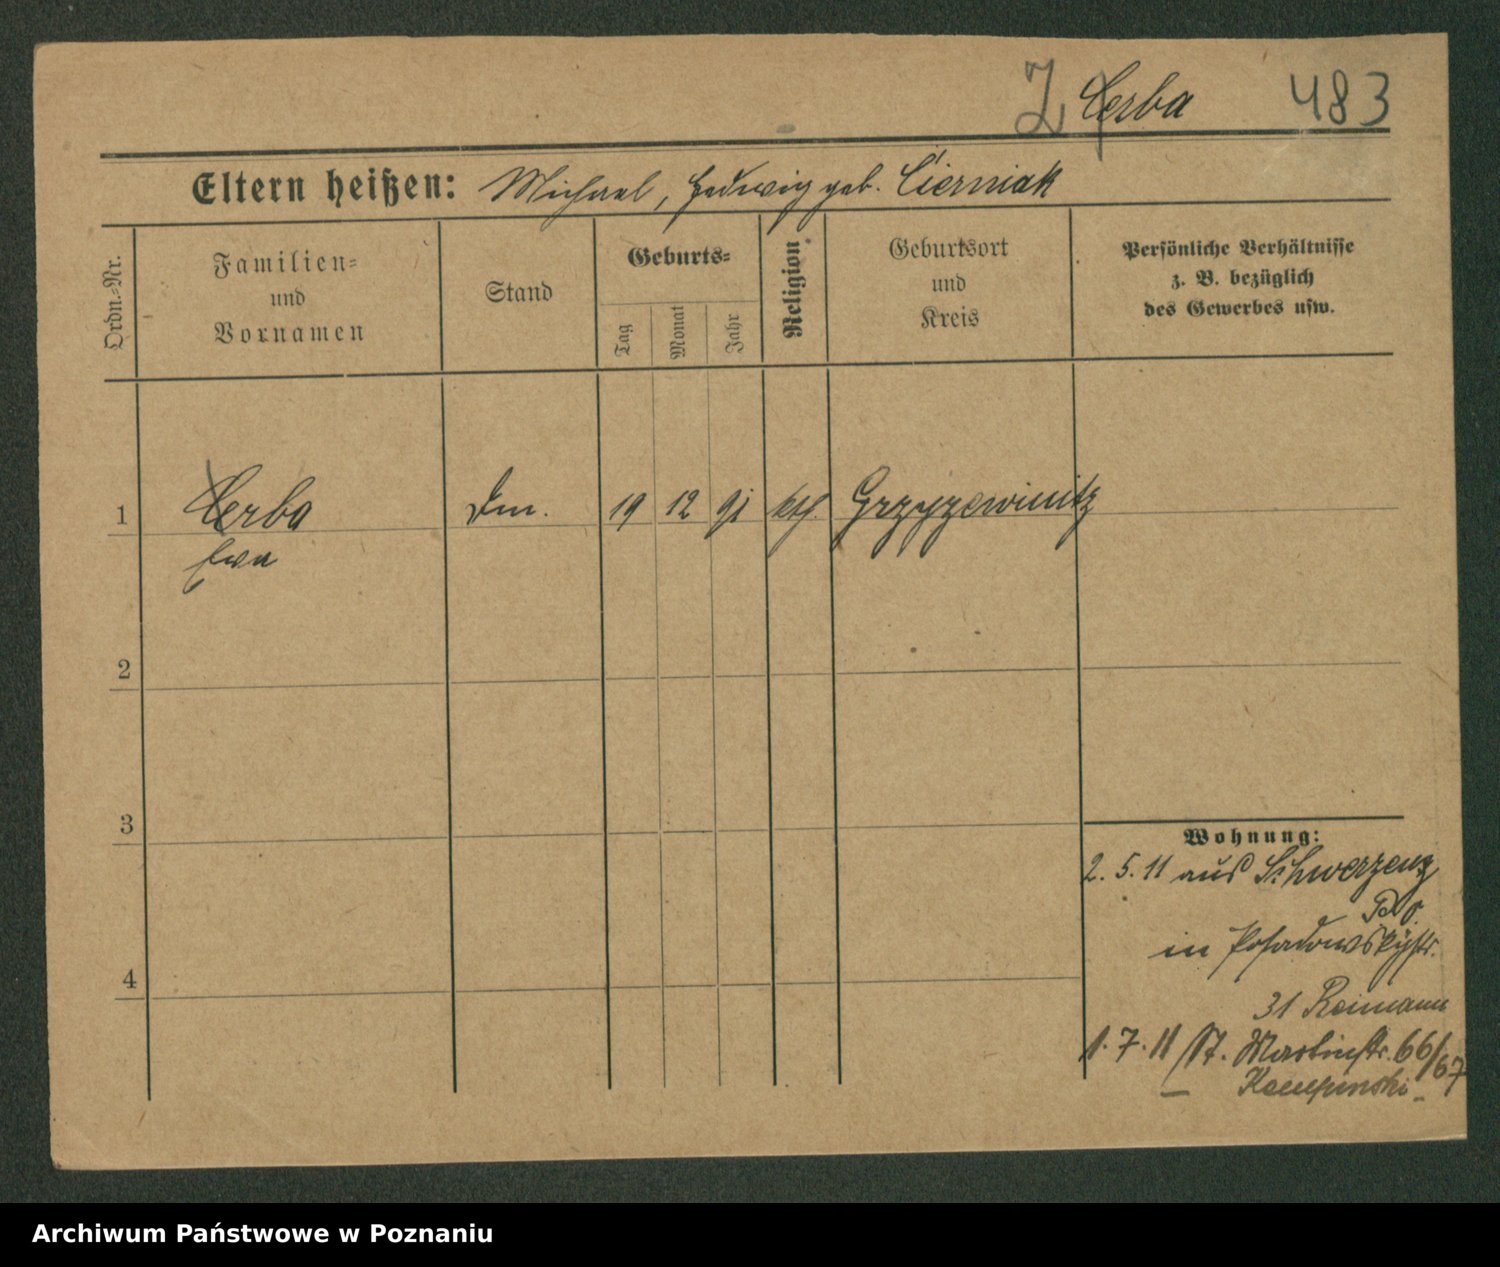 Z Cerba 483
Eltern heißen: Michael, Hedwig geb. Cierniak
Ordn.-Nr.
Familien-
und
Vornamen
Stand
Geburts-
Tag
Monat
Jahr
Religion
Geburtsort
und
Kreis
Persönliche Verhältnisse
z. B. bezüglich
des Gewerbes usw.
1 Cerba Dm. 19 12 91 kth. Grzyzewinitz
Ewa
2
3
4
Wohnung:
2. 5. 11 aus Schwerzenz
in Posadowskystr.
31 Reimann
1. 7. 11 St. Martinstr. 66/67
Kempinski
Archiwum Państwowe w Poznaniu